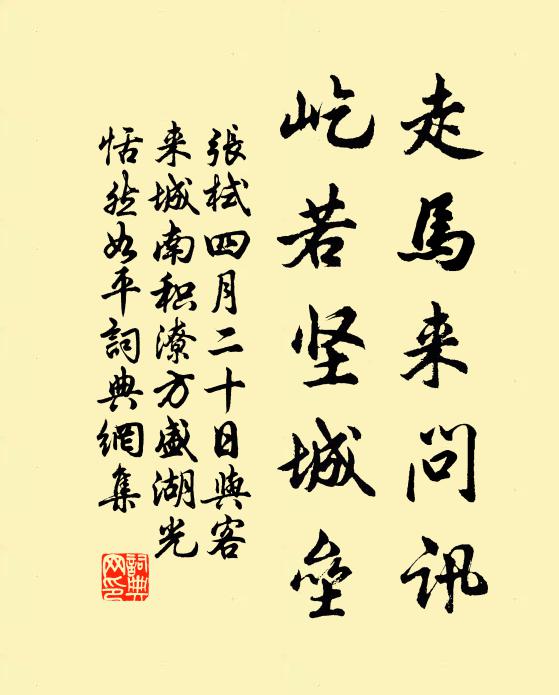 走馬来问訊
屹若坚城垒
張栻四月二十日與客
来城南积潦方盛湖光
恬然如平詞典網集
詞典
网印